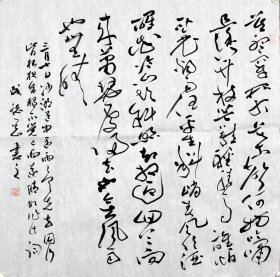 莫听穿林打叶声何妨吟啸
且徐行竹杖芒鞋轻胜马谁怕
一蓑烟雨任平生料峭春风吹酒
醒微冷山头斜照却相迎回首向
来萧瑟处归去也无风雨
也无晴
三月七日沙湖道中遇雨雨具先去同行
皆狼狈余独不觉已而遂晴故作此词